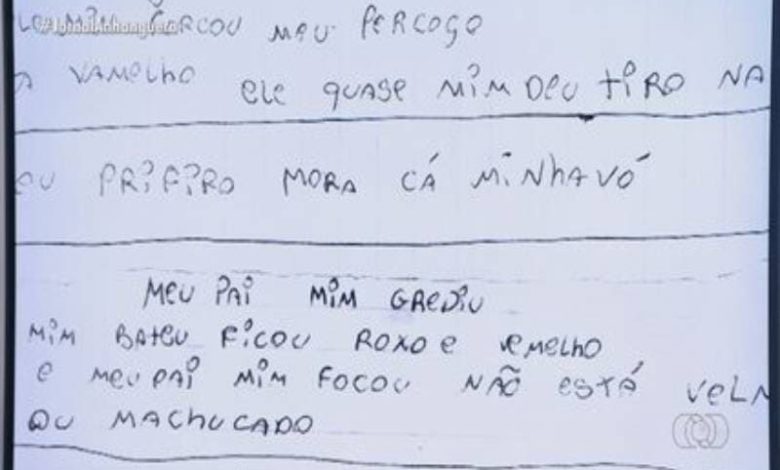 #JornalAnhanguera
MiM FORCOU MEU PERCOÇO
VAMELHO ELE QUASE MiM DEU TIRO NA
EU PRiFiRO MORA CÁ MiNhAVÓ
MEU PAi MiM GREDiU
MiM BATEU FiCOU ROXO E VEMELHO
E MEU PAi MiM FOCOU NÃO ESTÁ VELM
OU MACHUCADO